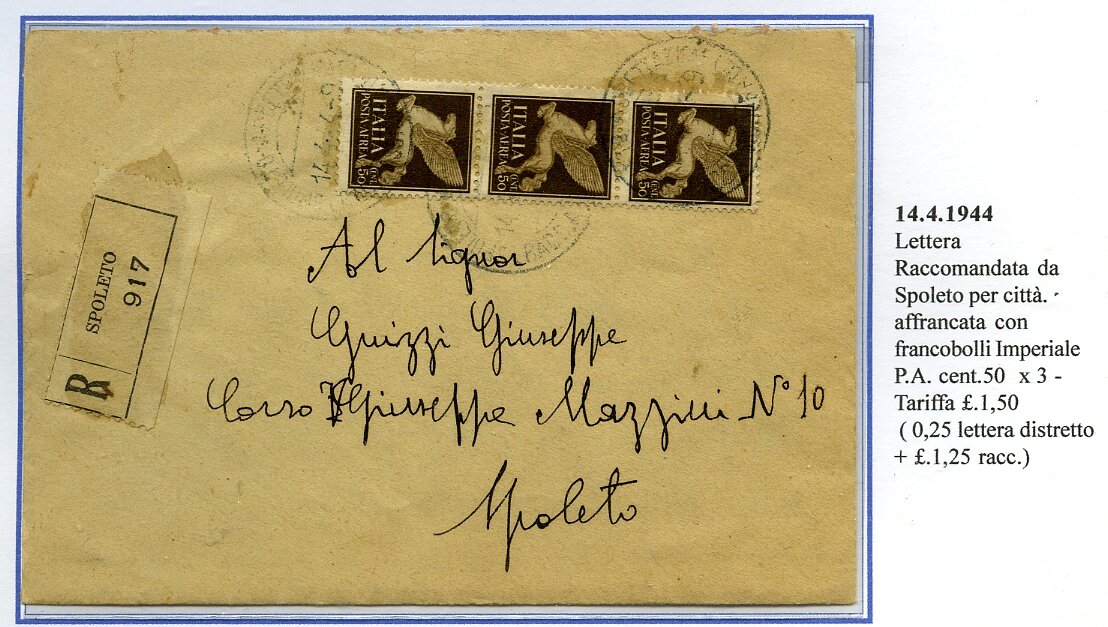 ITALIA
POSTA AEREA
CENT. 50
ITALIA
POSTA AEREA
CENT. 50
ITALIA
POSTA AEREA
CENT. 50
14.4.44-9
SPOLETO
917
R
Al Signor
Guizzi Giuseppe
Corso Giuseppe Mazzini N° 10
Spoleto
14.4.1944
Lettera
Raccomandata da
Spoleto per città. -
affrancata con
francobolli Imperiale
P.A. cent.50 x 3 -
Tariffa £.1,50
( 0,25 lettera distretto
+ £.1,25 racc.)